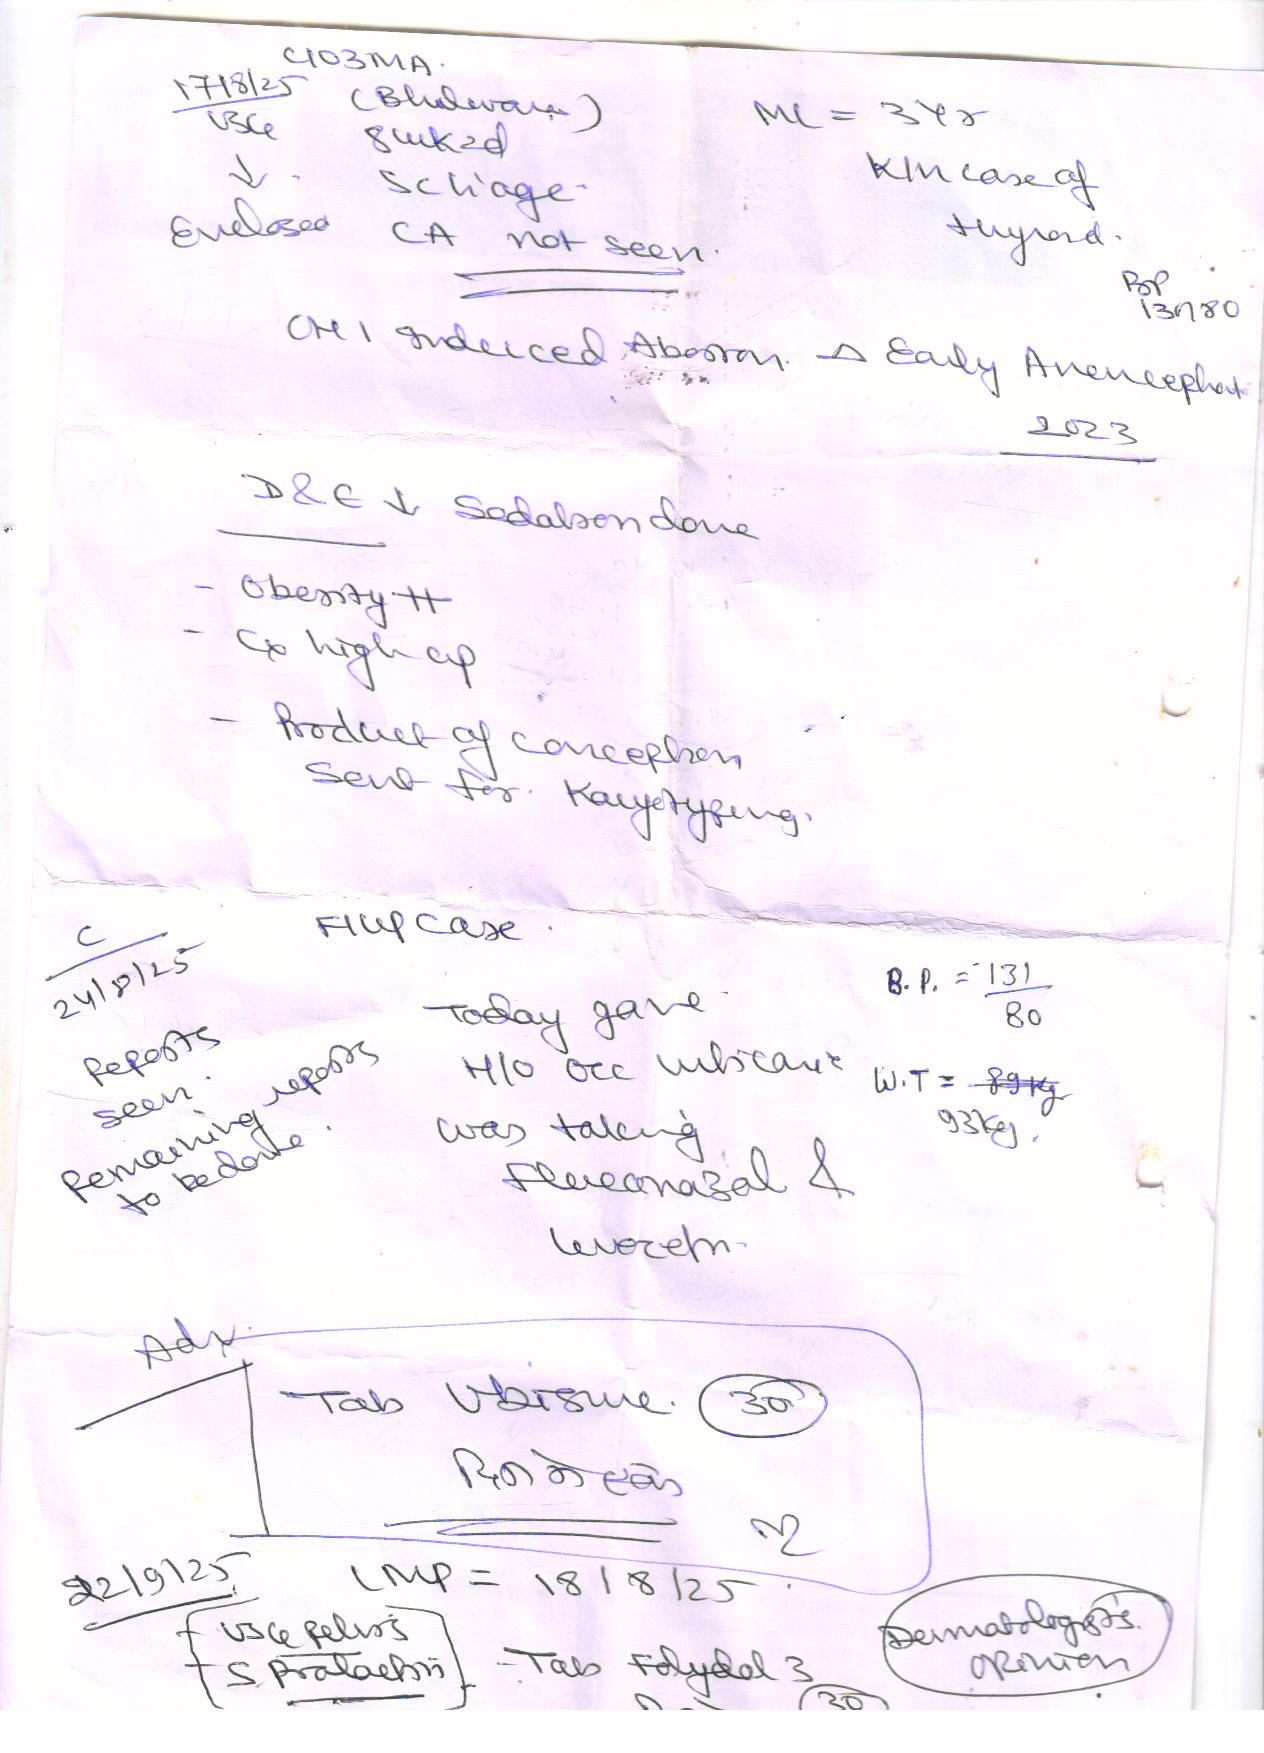 C/O 3MA.
17/8/25 (Bhilwara)
USG 8wk2d
↓ . SCliage.
Enclosed CA not seen.
ML = 3Yr
K/n case of
thyroid.
BP
130/80
OH 1 Induced Abortion. △ Early Anencephal
2023
D & E ↓ Sedation done
- Obesity ++
- Cx high up
- Product of conception
Sent for Karyotyping.
F/up case.
C
24/8/25
Reports
seen.
Remaining reports
to be done.
Today gave
H/O occ urticaria
was taking
Fluconazol &
levocetn.
B.P. = 131
80
W.T = 89kg
93kg.
Adv.
Tab 30
22/9/25 LMP = 18/8/25.
USG pelvis
S. Prolactin
Tab Folydol 3
30
Dermatologist's
opinion